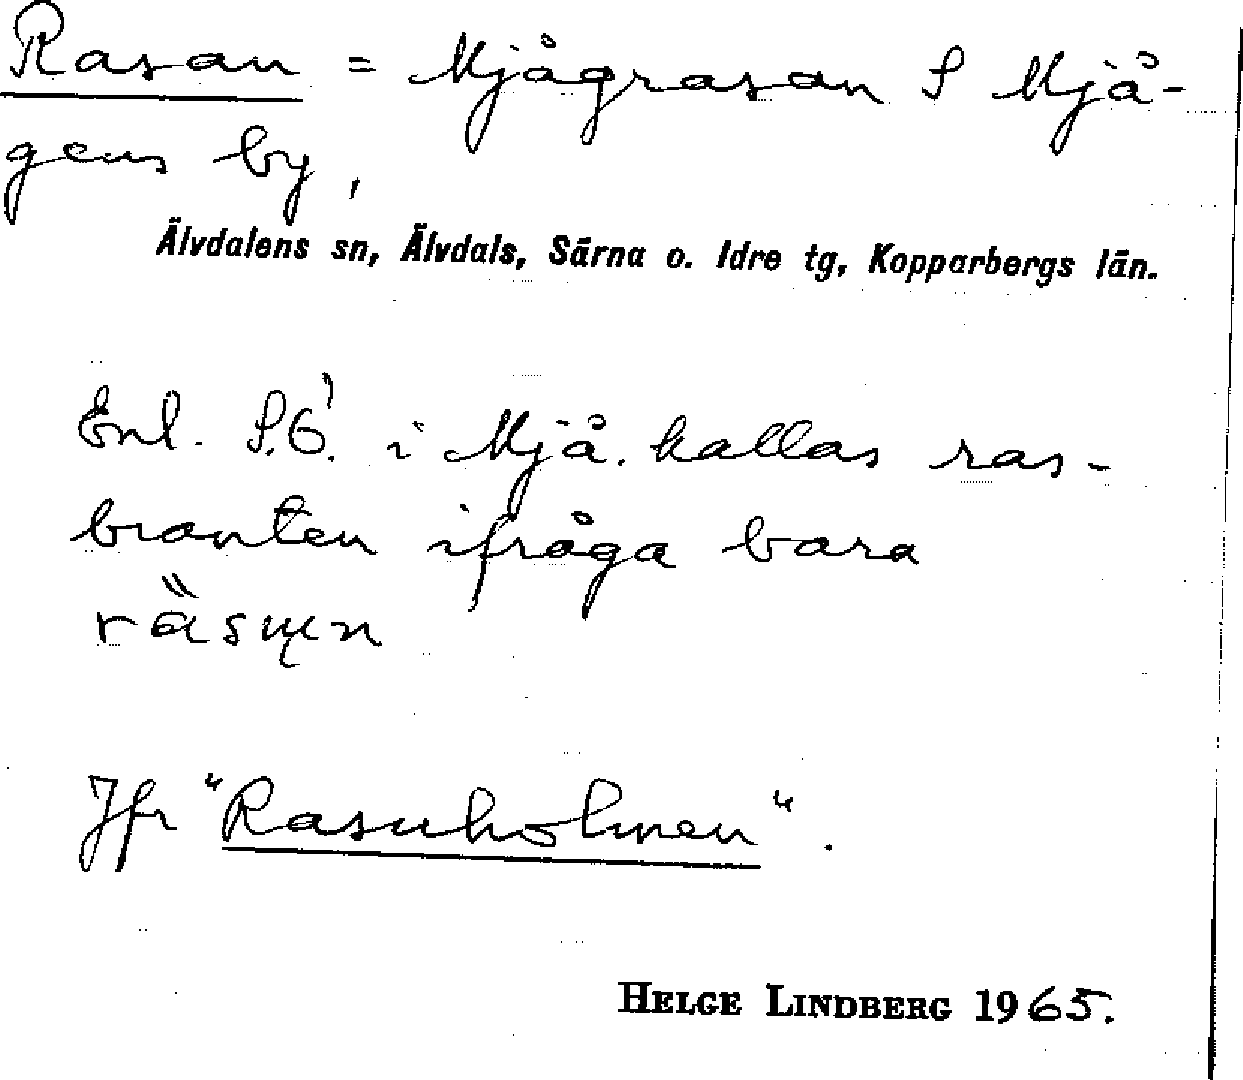 Rasan = Mjågrasan S Mjå-
gens by,
Älvdalens sn, Älvdals, Särna o. Idre tg, Kopparbergs län.
Enl. S.G. i Mjå. kallas ras-
branten ifråga bara
Jfr "Rasuholmen".
HELGE LINDBERG 1965.